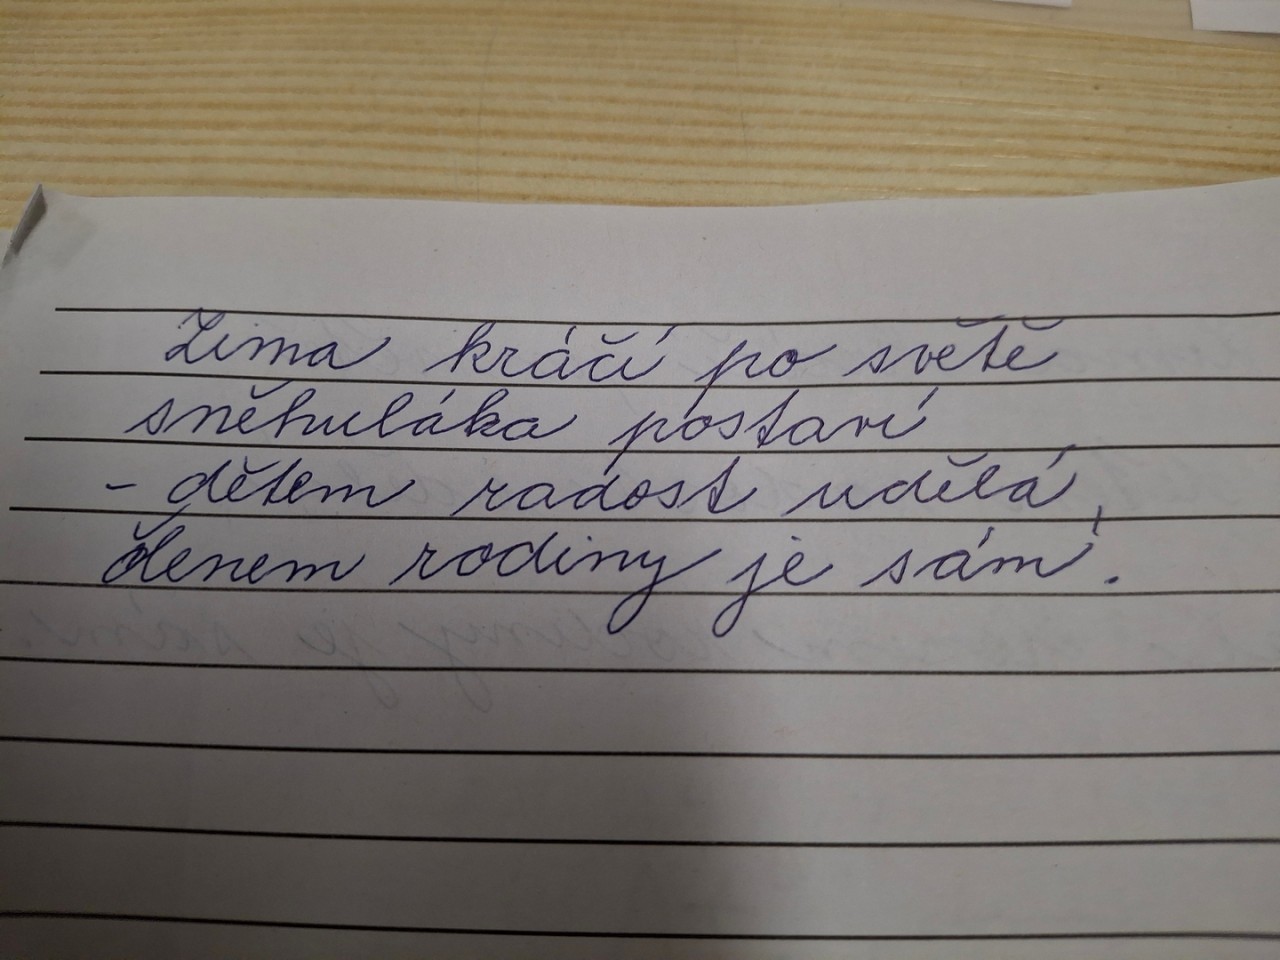 Zima kráčí po světě
sněhuláka postaví
- dětem radost udělá,
členem rodiny je sám.